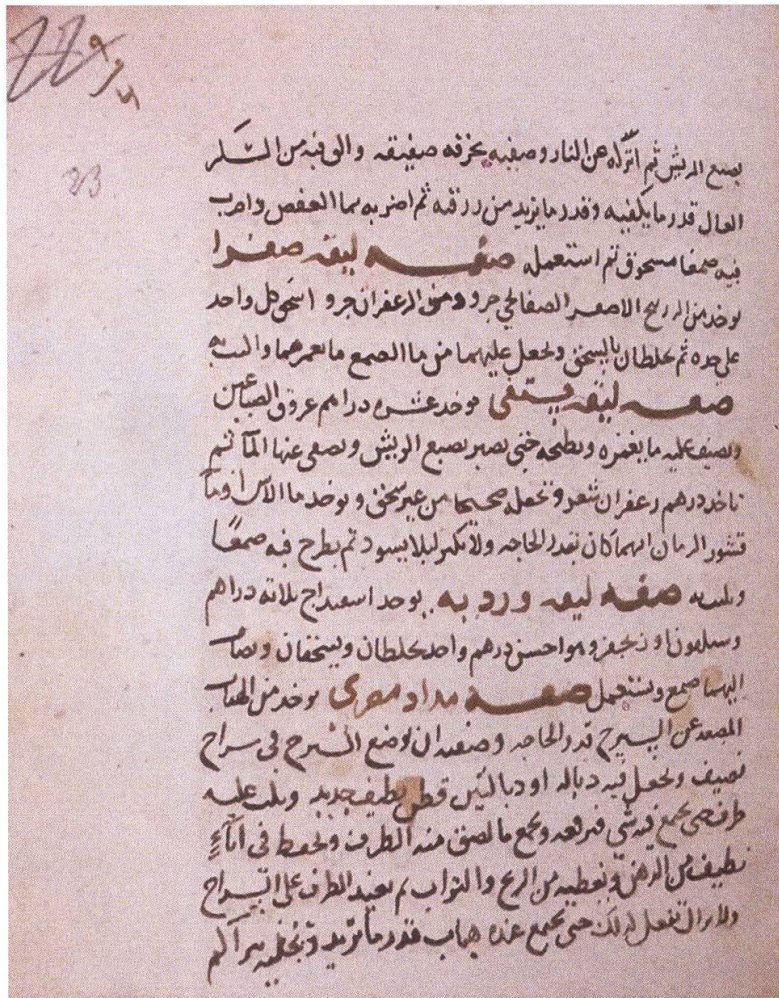 يصبغ الريش ثم انزله عن النار وصفيه بخرقه صفيقه والق فيه من السكر
العال قدر ما يكفيه وقدر ما يزيد من زرقه ثم اضربه بما العفص
فيه صمغا مسحوق ثم استعمله صفه ليقه صفرا
يوخد من الزرنيخ الاصفر الصفايحي جزو ومن الزعفران جزو اسحق كل واحد
على حده ثم يخلطان بالسحق ويجعل عليهما من ما الصمغ ما يغمرهما
صفه ليقه يوخد عشره دراهم عروق الصباغين
ويضيف عليه ما يغمره ويطبخه حتى يصير يصبغ الريش ويصفى عنها الما ثم
تاخد درهم زعفران شعر وتجعله صحيحا من غير سحق ويوخد ما الاس او ما
قشور الرمان ايهما كان بقدر الحاجه ولا يكثر ليلا يسود ثم يطرح فيه صمغا
صفه ليقه ورديه يوخد اسفيداج ثلاثه دراهم
وسيلقون او زنجفر وهو احسن درهم واحد يخلطان ويسحقان ويضاف
اليهما صمغ ويستعمل صفه مداد يوخد من الهباب
المصعد عن السيرج قدر الحاجه وصفته ان يوضع السيرج في سراج
نضيف ويجعل فيه دباله او دبالتين قطن نظيف جديد ويكب عليه
طرف حتى يجمع فيه شي فيرفعه ويجمع ما لصق منه الطرف ويحفظ في اناء
نظيف من الدهن ويغطيه من الريح والتراب ثم يعيد الطرف على السراج
ولا يزال تفعل ذلك حتى يجمع عنده هباب قدر ما تريد
23